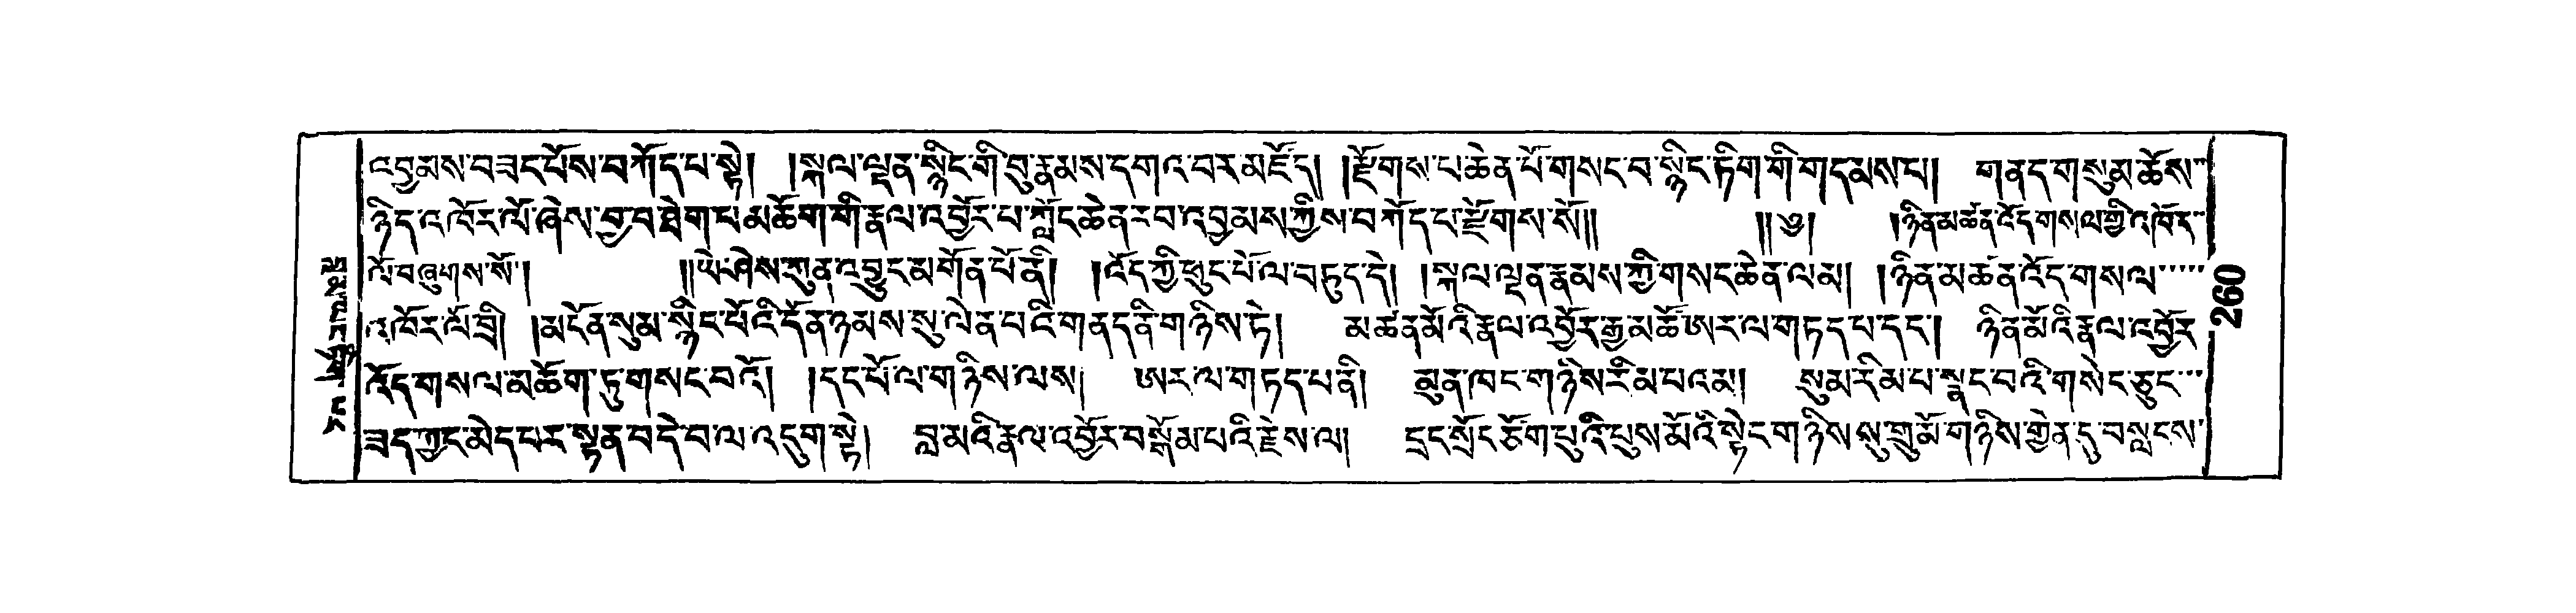 འབྱམས་བཟང་པོས་བཀོད་པ་སྟེ། །སྐལ་ལྡན་སྙིང་གི་བུ་རྣམས་དགའ་བར་མཛོད། །རྫོགས་པ་ཆེན་པོ་གསང་བ་སྙིང་ཏིག་གི་གདམས་པ། གནད་གསུམ་ཆོས་
ཉིད་འཁོར་ལོ་ཞེས་བྱ་བ་ཐེག་པ་མཆོག་གི་རྣལ་འབྱོར་པ་ཀློང་ཆེན་རབ་འབྱམས་ཀྱིས་བཀོད་པ་རྫོགས་སོ།། །།༧། །ཉིན་མཚན་འོད་གསལ་གྱི་འཁོར་
ལོ་བཞུགས་སོ་། །།ཡེ་ཤེས་ཀུན་འབྱུང་མགོན་པོ་ནི། །འོད་ཀྱི་ཕུང་པོ་ལ་བཏུད་དེ། །སྐལ་ལྡན་རྣམས་ཀྱི་གསང་ཆེན་ལམ། །ཉིན་མཚན་འོད་གསལ་
འཁོར་ལོ་བྲི། །མངོན་སུམ་སྙིང་པོའི་དོན་ཉམས་སུ་ལེན་པའི་གནད་ནི་གཉིས་ཏེ། མཚན་མོའི་རྣལ་འབྱོར་རྒྱ་མཚོ་ཨར་ལ་གཏད་པ་དང་། ཉིན་མོའི་རྣལ་འབྱོར་
འོད་གསལ་མཆོག་ཏུ་གསང་བའོ། །དང་པོ་ལ་གཉིས་ལས། ཨར་ལ་གཏད་པ་ནི། མུན་ཁང་གཉིས་རིམ་པའམ། སུམ་རིམ་པ་སྣང་བའི་གསེང་ཅུང་
ཟད་ཀྱང་མེད་པར་སྟན་བདེ་བ་ལ་འདུག་སྟེ། བླ་མའི་རྣལ་འབྱོར་བསྒོམ་པའི་རྗེས་ལ། དྲང་སྲོང་ཙོག་པུའི་པུས་མོའི་སྟེང་གཉིས་སུ་གྲུ་མོ་གཉིས་གྱེན་དུ་བསླངས་